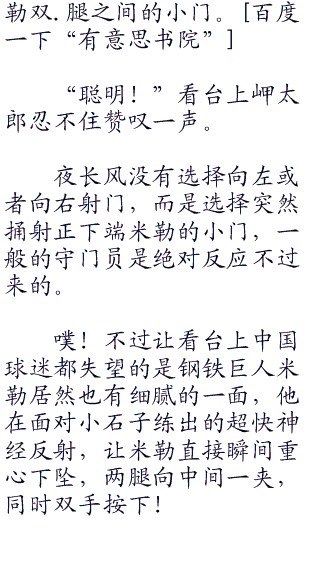 勒双.腿之间的小门。[百度
一下“有意思书院”]
“聪明！”看台上岬太
郎忍不住赞叹一声。
夜长风没有选择向左或
者向右射门，而是选择突然
捅射正下端米勒的小门，一
般的守门员是绝对反应不过
来的。
噗！不过让看台上中国
球迷都失望的是钢铁巨人米
勒居然也有细腻的一面，他
在面对小石子练出的超快神
经反射，让米勒直接瞬间重
心下坠，两腿向中间一夹，
同时双手按下！